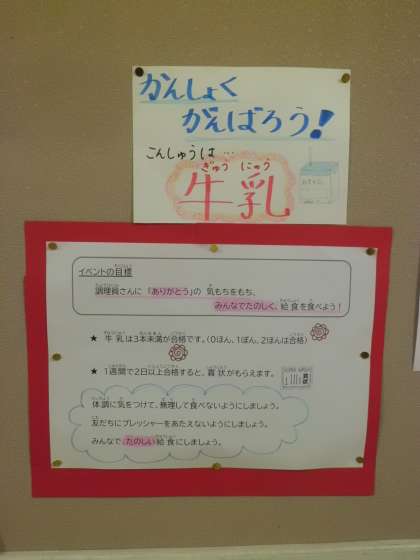 かんしょく
がんばろう!
こんしゅうは…
ぎゅう にゅう
牛乳
イベントの目標
調理員さんに「ありがとう」の 気もちをもち、
みんなでたのしく、給食を食べよう!
★ 牛乳は3本未満が合格です。(0ほん、1ぽん、2ほんは合格)
★ 1週間で2日以上合格すると、賞状がもらえます。
賞状
体調に気をつけて、無理して食べないようにしましょう。
友だちにプレッシャーをあたえないようにしましょう。
みんなで、たのしい給食にしましょう。